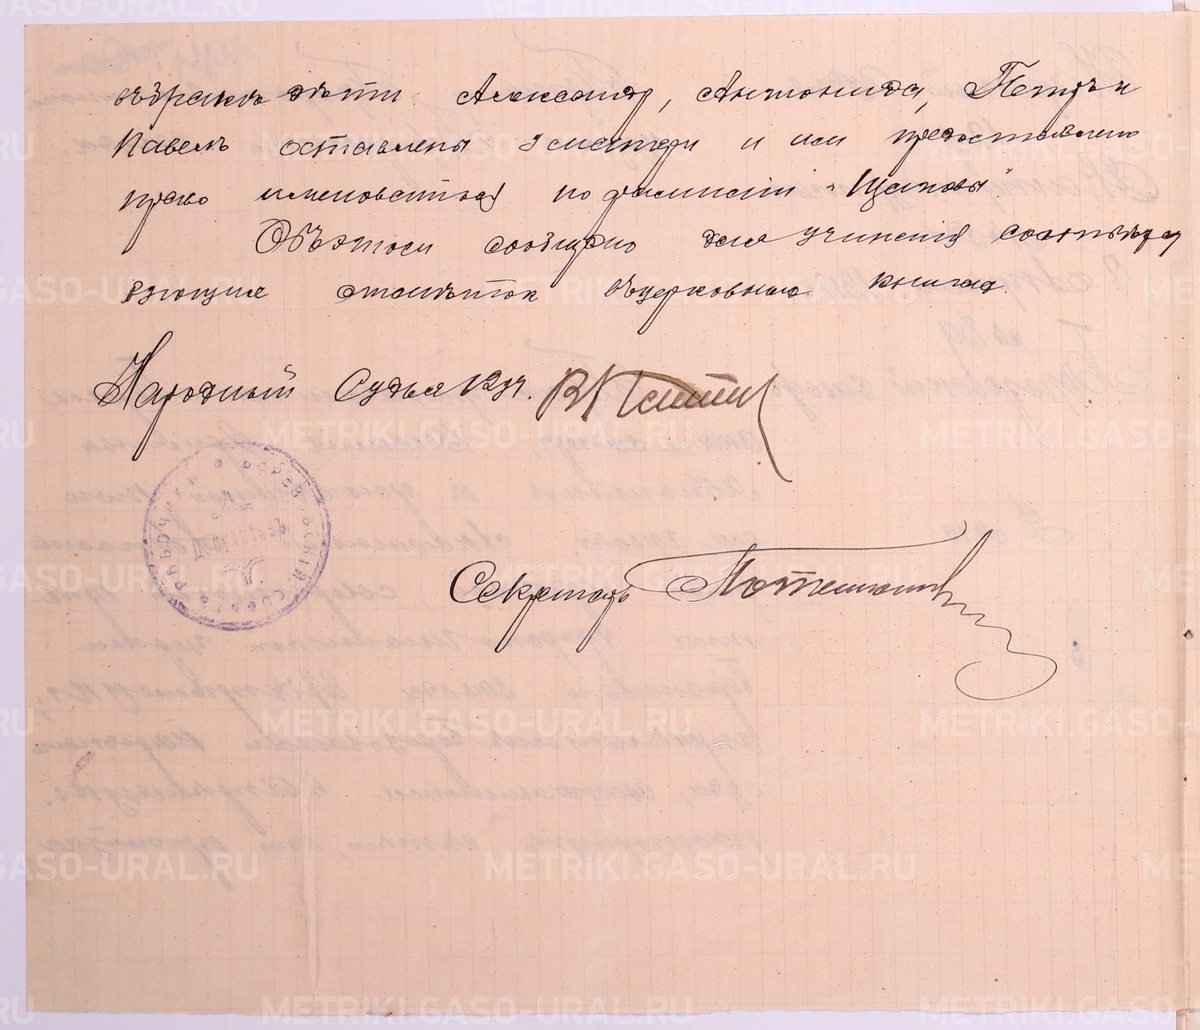 въ бракѣ дѣти Александръ, Антонида, Петръ и
Павелъ оставлены у матери и им предоставлено
право именоваться по фамиліи "
Объ этом сообщаю для учиненія соотвѣтст
вующих отмѣток въ церковных книгах.
Народный Судья 12 уч.
Секретарь
METRIKI.GASO-URAL.RU